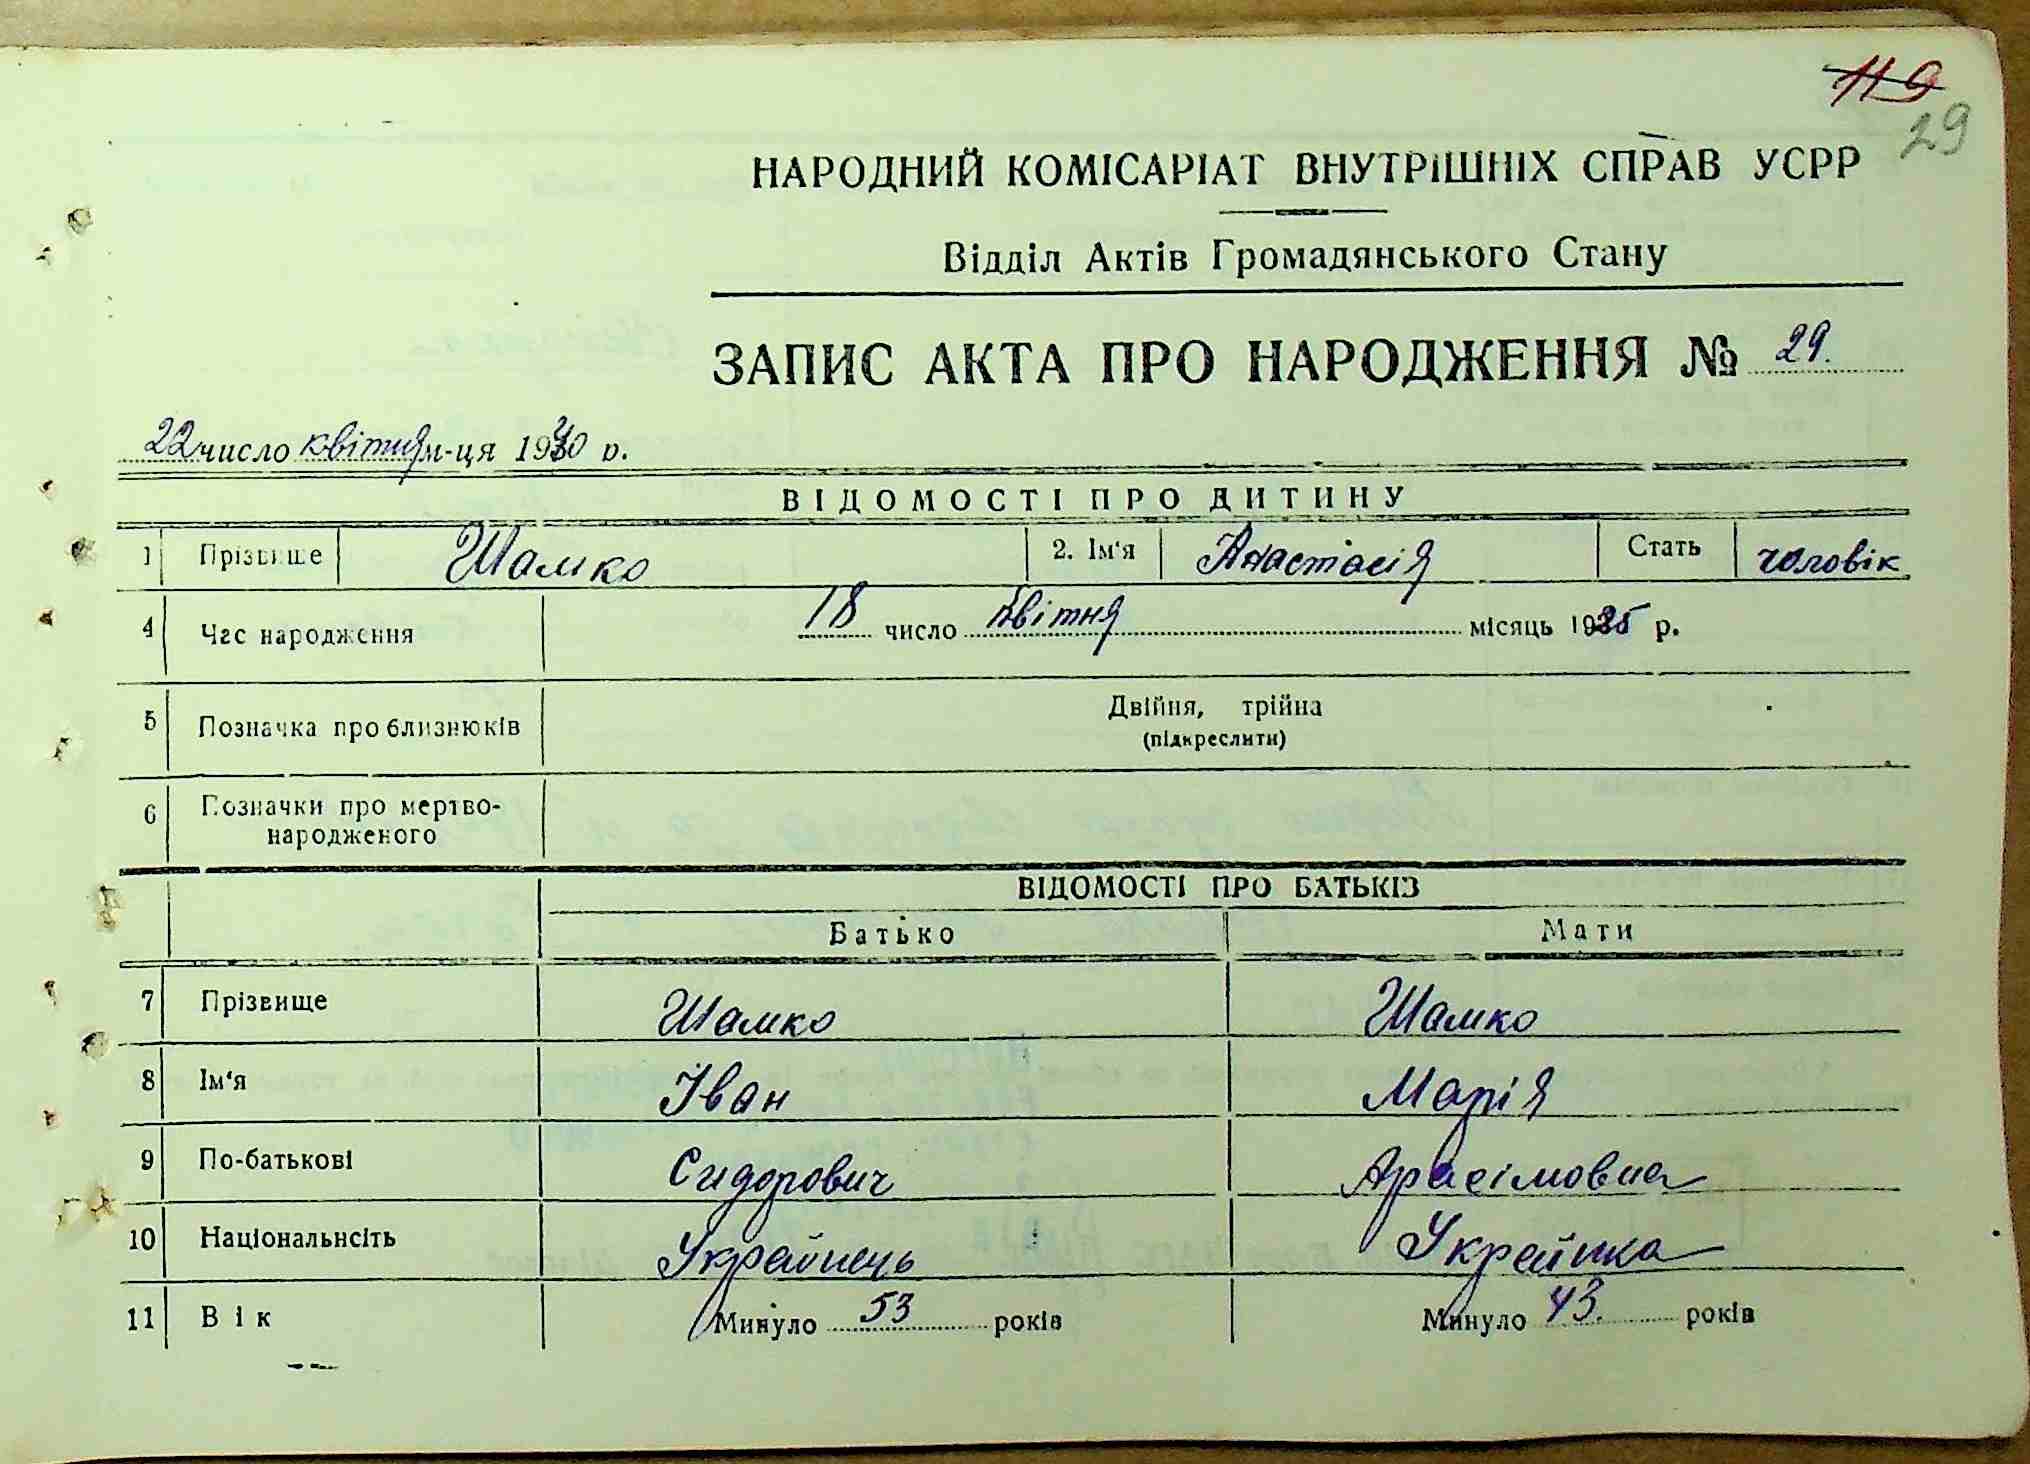 119
29
НАРОДНИЙ КОМІСАРІАТ ВНУТРІШНІХ СПРАВ УСРР
Відділ Актів Громадянського Стану
ЗАПИС АКТА ПРО НАРОДЖЕННЯ № 29.
22 число квітня м-ця 1930 р.
ВІДОМОСТІ ПРО ДИТИНУ
1 Прізвише Шамко 2. Ім'я Анастасія Стать чоловік
4 Час народження 18 число квітня місяць 1925 р.
5 Позначка про близнюків Двійня, трійна
(підкреслити)
6 Позначки про мертво-
народженого
ВІДОМОСТІ ПРО БАТЬКІВ
Батько Мати
7 Прізвище Шамко Шамко
8 Ім'я Іван Марія
9 По-батькові Сидорович
10 Національнсіть Українець Українка
11 Вік Минуло 53 років Минуло 43. років